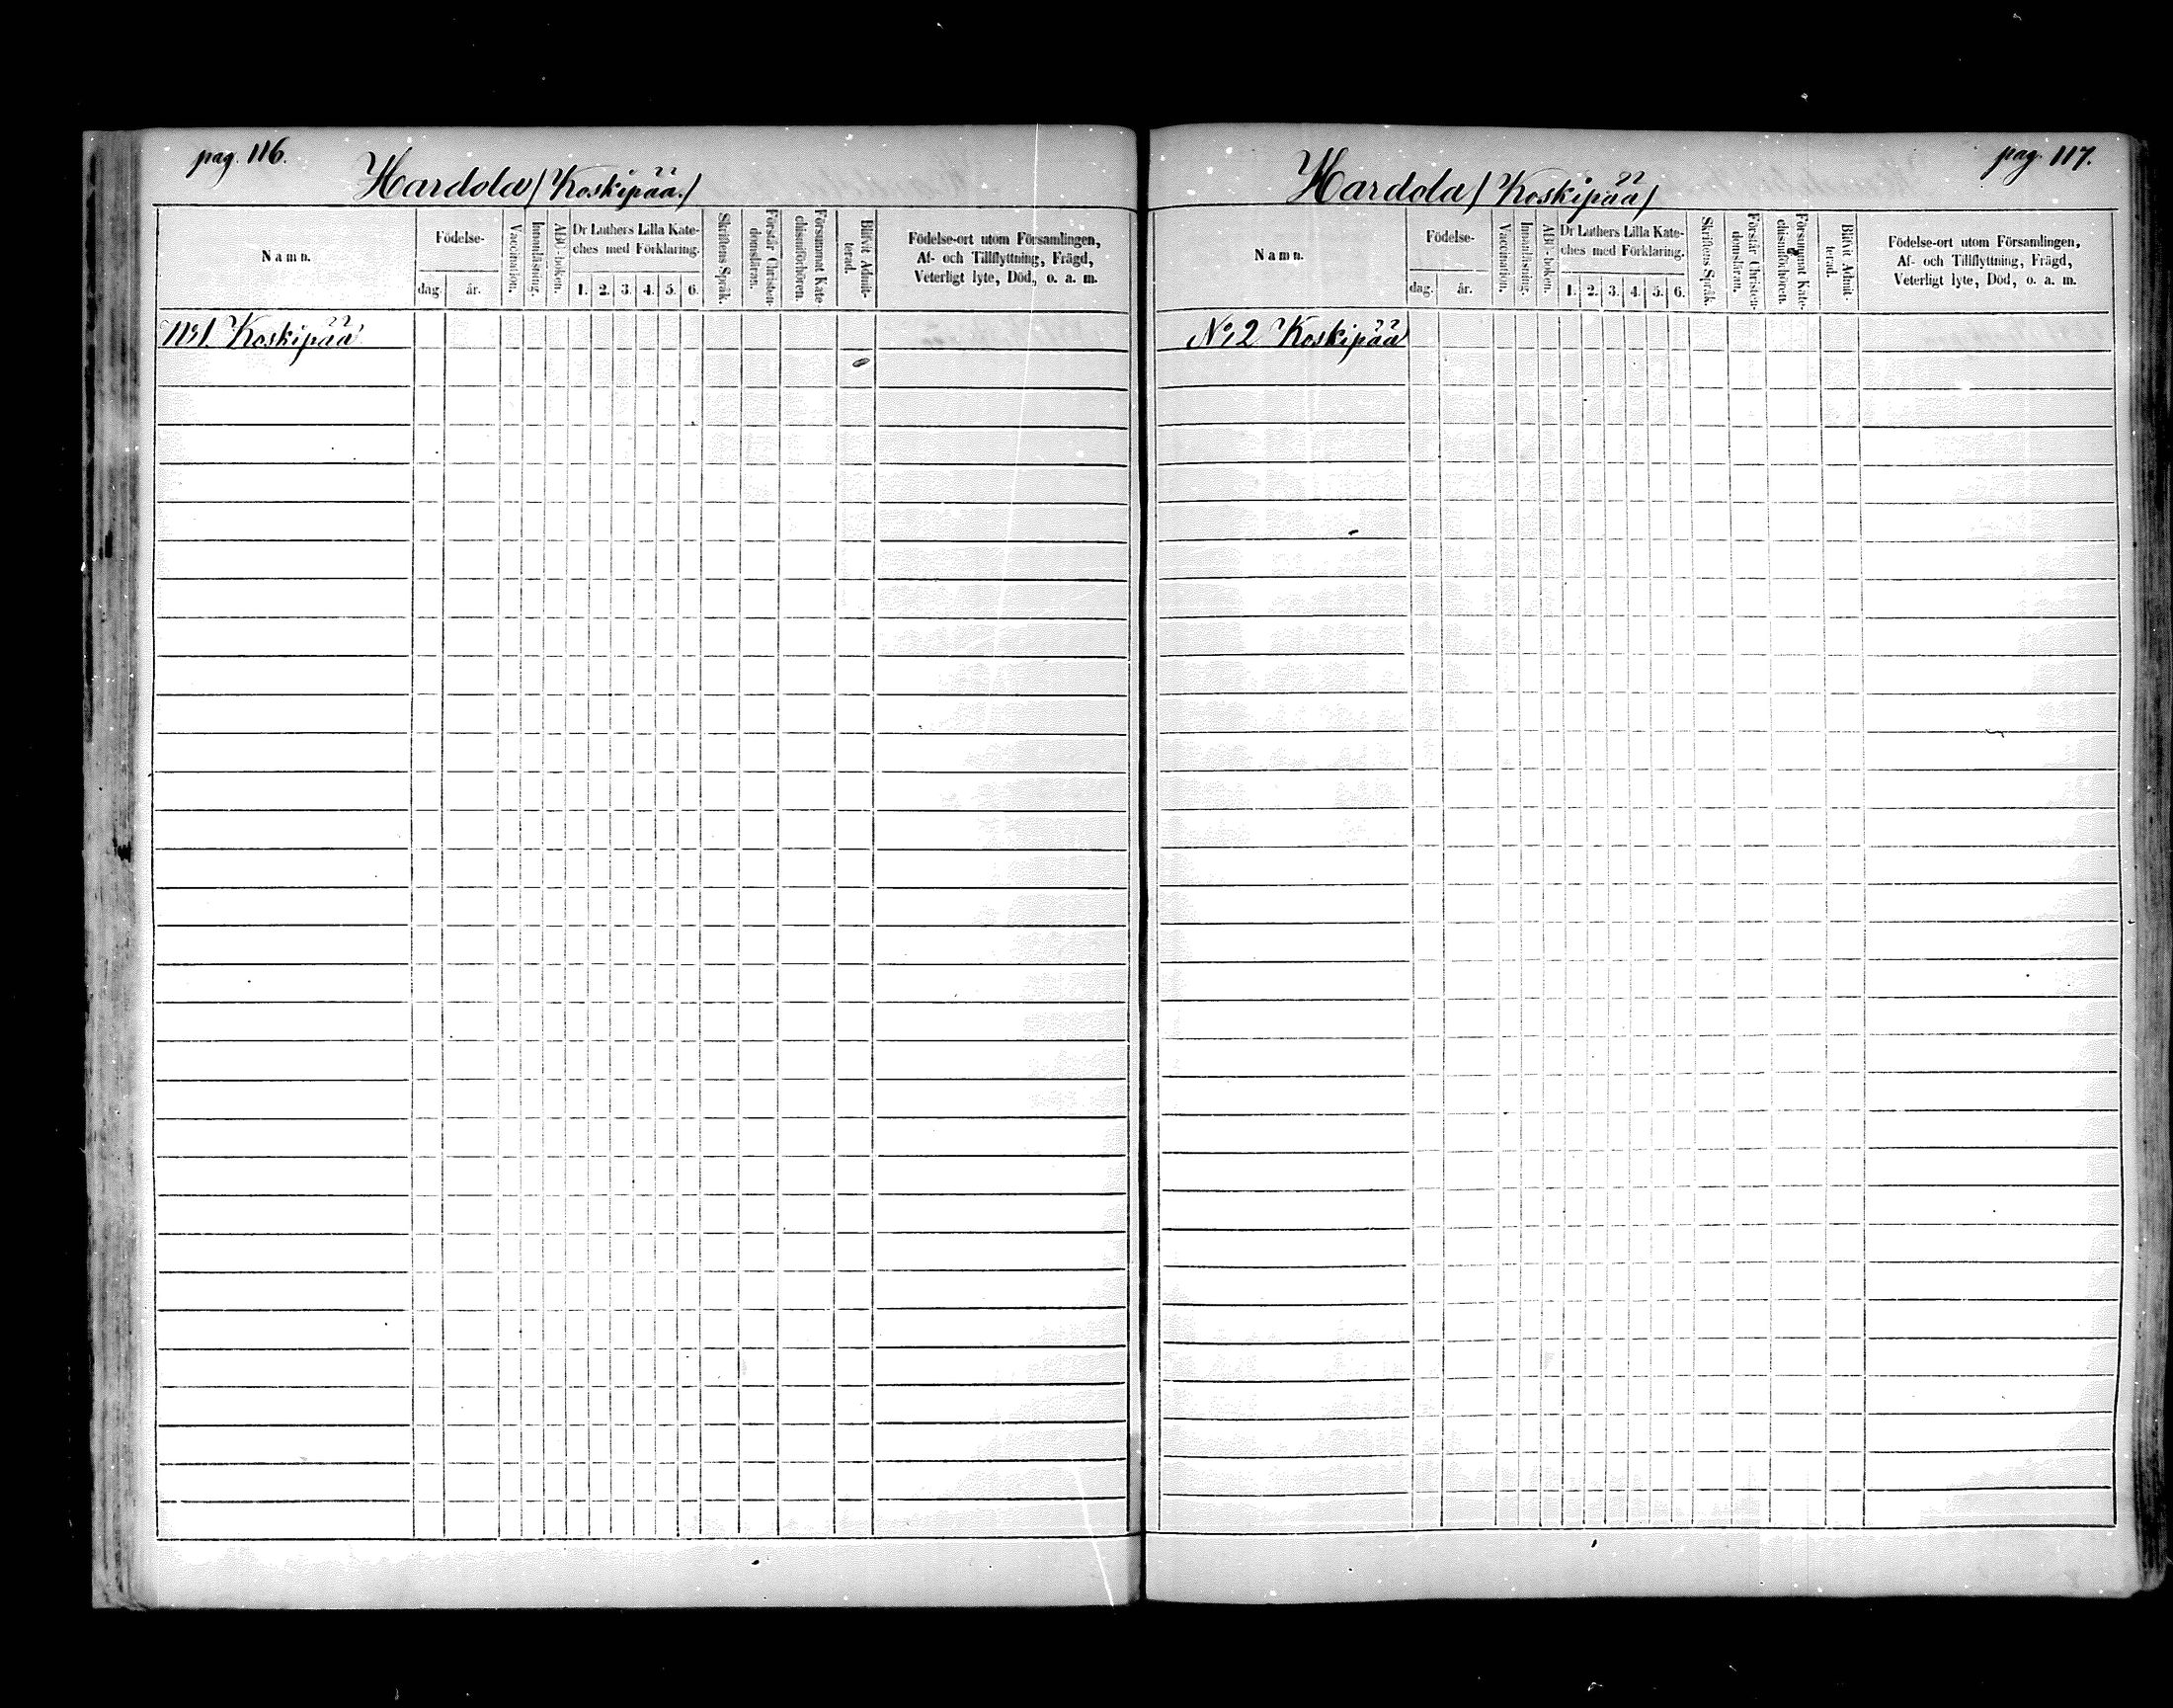 pag. 116.
Hardola / Koskipää. /
Namn.
Födelse-
dag.
år.
Vaccination.
Innanläsning.
ABC-boken.
Dr Luthers Lilla Kate-
ches med Förklaring.
1. 2. 3. 4. 5. 6.
Skriftens Språk.
Förstår Christen-
domsläran.
Försummat Kate-
chismiförhören.
Blifvit Admit-
terad.
Födelse-ort utom Församlingen,
Af- och Tillflyttning, Frägd,
Veterligt lyte, Död., o. a. m.
No 1. Koskipää
pag. 117.
Hardola / Koskipää /
Namn.
Födelse-
dag.
år.
Vaccination.
Innanläsning.
ABC-boken.
Dr Luthers Lilla Kate-
ches med Förklaring.
1. 2. 3. 4. 5. 6.
Skriftens Språk.
Förstår Christen-
domsläran.
Försummat Kate-
chismiförhören.
Blifvit Admit-
terad.
Födelse-ort utom Församlingen,
Af- och Tillflyttning, Frägd,
Veterligt lyte, Död, o. a. m.
No 2 Koskipää